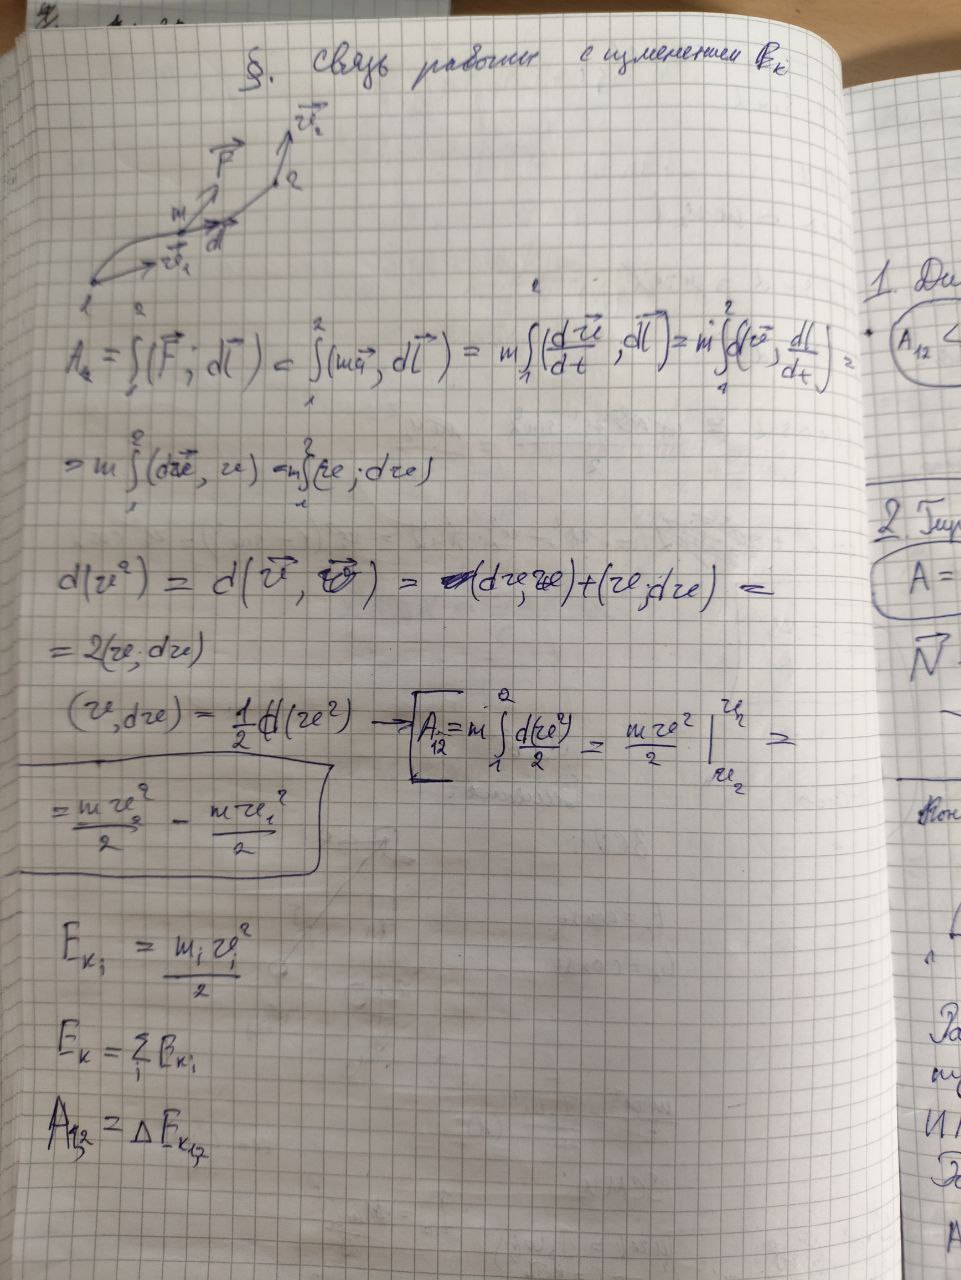 §. Связь работы с изменением Eₖ
v⃗₂
F⃗
m
2
dl⃗
v⃗₁
1
A₁₂ = ∫₁² (F⃗; dl⃗) = ∫₁² (ma⃗, dl⃗) = m∫₁² (dv⃗/dt, dl⃗) = m∫₁² (dv⃗, dl/dt) =
= m∫₁² (dv⃗, v) = m∫₁² (v; dv)
d(v²) = d(v⃗, v⃗) = (dv, v) + (v; dv) =
= 2(v; dv)
(v, dv) = 1/2 d(v²) → [A₁₂ = m∫₁² d(v²)/2 = mv²/2 |
= mv₂²/2 − mv₁²/2
Eₖᵢ = mᵢvᵢ²/2
Eₖ = Σᵢ Eₖᵢ
A₁,₂ = ΔEₖ₁,₂
1. Ди
A₁₂
2.
A =
N⃗